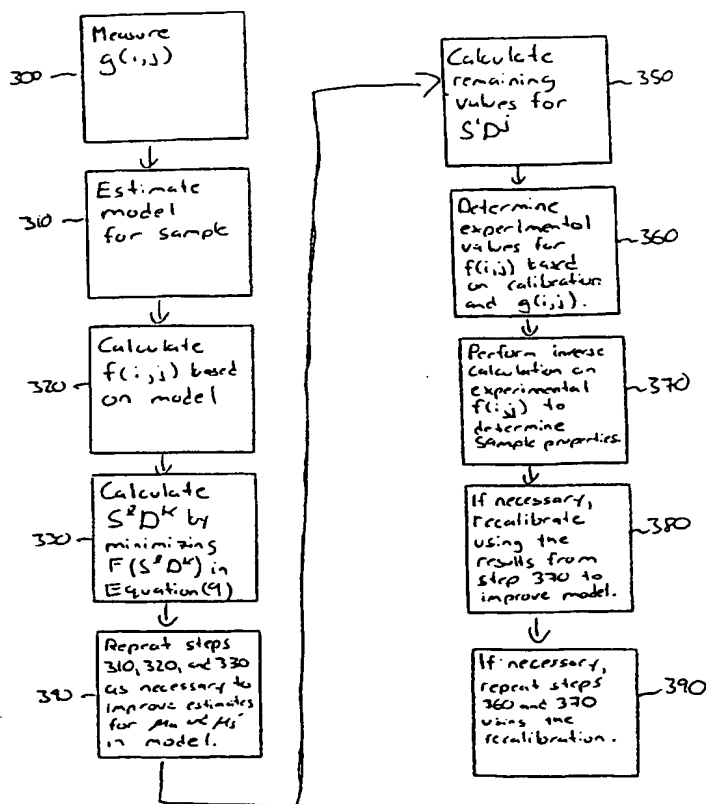 300
Measure
g(i,j)
310
Estimate
model
for sample
320
Calculate
f(i,j) based
on model
330
Calculate
SˡDᵏ by
minimizing
F(SˡDᵏ) in
Equation (9)
340
Repeat steps
310, 320, and 330
as necessary to
improve estimates
for μa & μs'
in model.
350
Calculate
remaining
values for
SⁱDʲ
360
Determine
experimental
values for
f(i,j) based
on calibration
and g(i,j).
370
Perform inverse
calculation on
experimental
f(i,j) to
determine
sample properties.
380
If necessary,
recalibrate
using the
results from
step 370 to
improve model.
390
If necessary,
repeat steps
360 and 370
using the
recalibration.